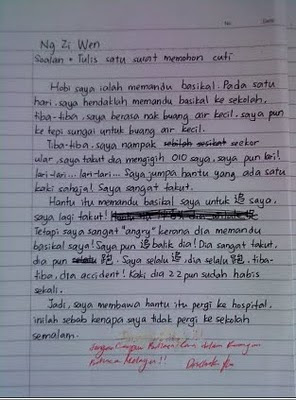 No. Date
Ng Zi Wen
Soalan + Tulis satu surat memohon cuti
Hobi saya ialah memandu basikal. Pada satu
hari, saya hendaklah memandu basikal ke sekolah,
tiba-tiba, saya berasa nak buang air kecil. saya pun
ke tepi sungai untuk buang air kecil.
Tiba-tiba, saya nampak seekor
ular, saya takut dia mengigih 010 saya, saya pun lari!
lari-lari... lari-lari... Saya jumpa hantu yang ada satu
kaki sahaja! Saya sangat takut.
Hantu itu memandu basikal saya untuk 追 saya,
saya lagi takut!
Tetapi saya sangat "angry" kerana dia memandu
basikal saya! Saya pun 追 balik dia! Dia sangat takut,
dia pun 跑. Saya selalu 追, dia selalu 跑, tiba-
tiba, dia accident! Kaki dia 22 pun sudah habis
sekali.
Jadi, saya membawa hantu itu pergi ke hospital,
inilah sebab kenapa saya tidak pergi ke sekolah
semalam.
Jangan Campur Bahasa Cina dalam Karangan
Bahasa Melayu!!